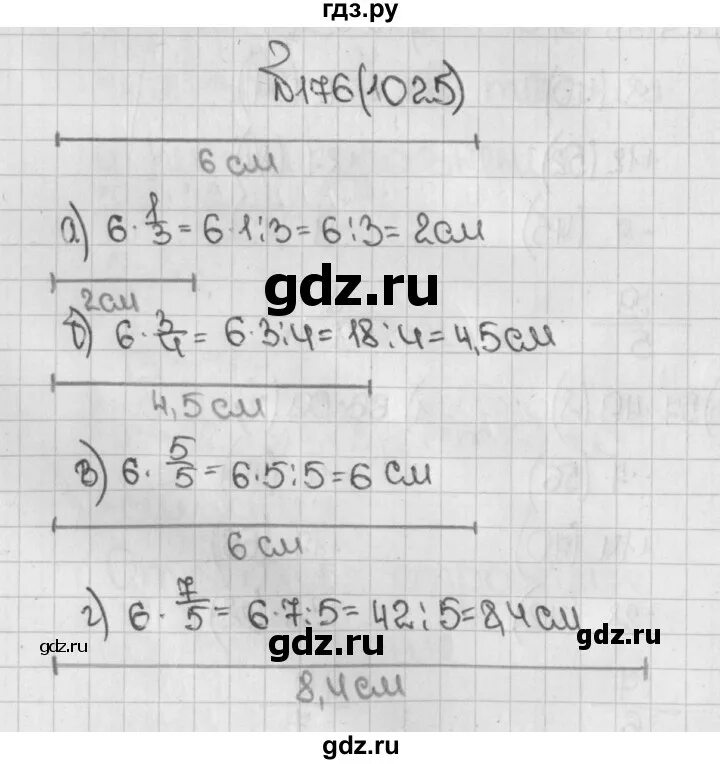 гдз.ру
gdz.ru
№176(1025)
6 см
а) 6·1/3=6·1:3=6:3=2см
gdz.ru
2см
б) 6·3/4=6·3:4=18:4=4,5см
4,5 см
в) 6·5/5=6·5:5=6 см
6 см
г) 6·7/5=6·7:5=42:5=8,4см
gdz.ru
gdz.ru
gdz.ru
8,4см
gdz.ru